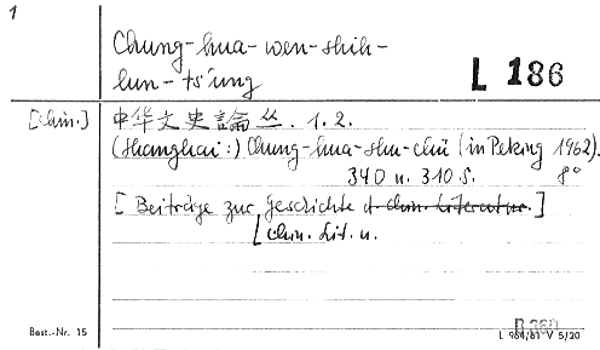 1
Chung-hua-wen-shih-
lun-ts'ung
L 186
[chin.] 中华文史論丛. 1.2.
(Shanghai:) Chung-hua-shu-chü (in Peking 1962).
340 u. 310 S. 8°
[Beiträge zur Geschichte d. chin. Literatur.]
chin. Lit. u.
Best.-Nr. 15
L 904/61 V 5/20